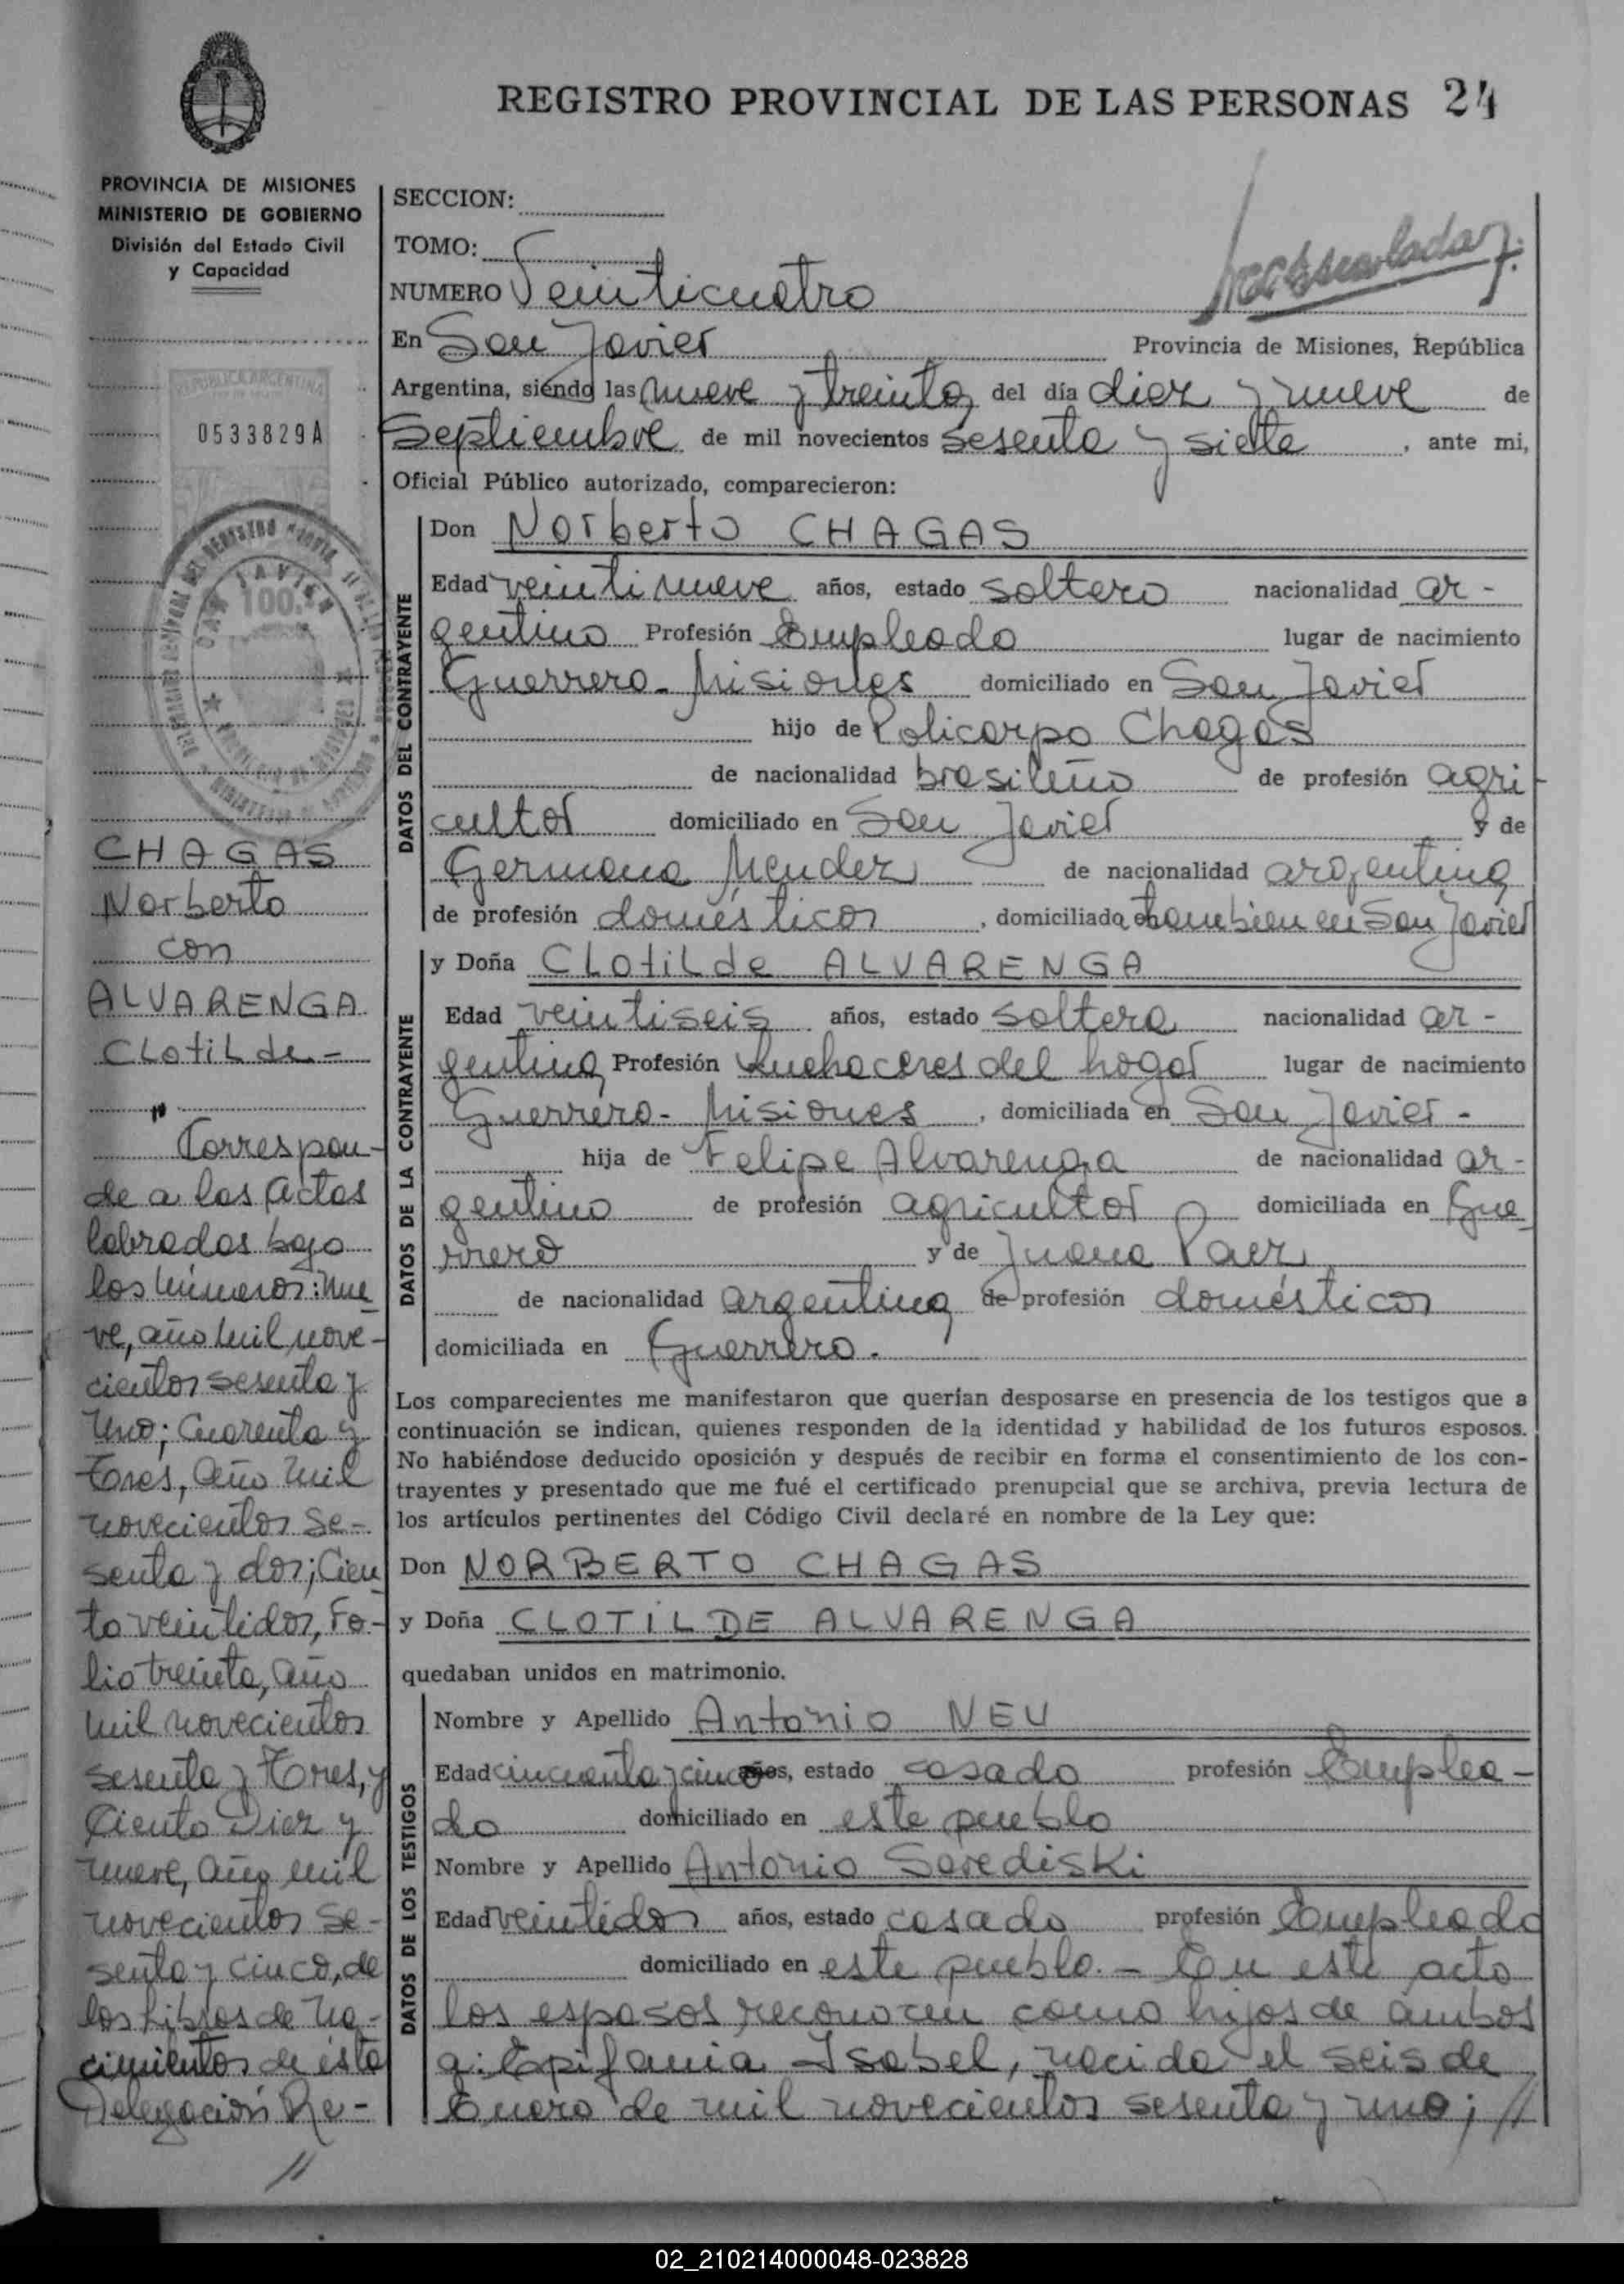 REGISTRO PROVINCIAL DE LAS PERSONAS 24
PROVINCIA DE MISIONES
MINISTERIO DE GOBIERNO
División del Estado Civil
y Capacidad
0533829A
SAN JAVIER
100.
CHAGAS
Norberto
con
ALVARENGA
Clotilde.-
Correspon-
de a las actas
labradas bajo
los Números: Nue
ve, año mil nove-
cientos sesenta y
Uno; Cuarenta y
Tres, año mil
novecientos se-
senta y dos; Cien
to veintidos, Fo-
lio treinta, año
mil novecientos
sesenta y Tres, y
Ciento Diez y
nueve, año mil
novecientos se-
senta y cinco, de
los Libros de Na-
cimientos de esta
Delegación Re-
//
SECCION:
TOMO:
NUMERO Veinticuatro
En San Javier Provincia de Misiones, República
Argentina, siendo las nueve y treinta, del día diez y nueve de
Septiembre de mil novecientos sesenta y siete, ante mi,
Oficial Público autorizado, comparecieron:
DATOS DEL CONTRAYENTE
Don Norberto CHAGAS
Edad veintinueve años, estado soltero nacionalidad ar-
gentino Profesión Empleado lugar de nacimiento
Guerrero - Misiones domiciliado en San Javier
hijo de Policarpo Chagas
de nacionalidad brasileño de profesión agri-
cultor domiciliado en San Javier y de
Germana Mendez de nacionalidad argentina
de profesión domésticos, domiciliada tambien en San Javier
DATOS DE LA CONTRAYENTE
y Doña Clotilde ALVARENGA
Edad veintiseis años, estado soltera nacionalidad ar-
gentina, Profesión Quehaceres del hogar lugar de nacimiento
Guerrero - Misiones, domiciliada en San Javier -
hija de Felipe Alvarenga de nacionalidad ar-
gentino de profesión agricultor domiciliada en Gue
rrero y de Juana Paez
de nacionalidad argentina de profesión domésticos
domiciliada en Guerrero.
Los comparecientes me manifestaron que querían desposarse en presencia de los testigos que a
continuación se indican, quienes responden de la identidad y habilidad de los futuros esposos.
No habiéndose deducido oposición y después de recibir en forma el consentimiento de los con-
trayentes y presentado que me fué el certificado prenupcial que se archiva, previa lectura de
los artículos pertinentes del Código Civil declaré en nombre de la Ley que:
Don NORBERTO CHAGAS
y Doña CLOTILDE ALVARENGA
quedaban unidos en matrimonio.
DATOS DE LOS TESTIGOS
Nombre y Apellido Antonio NEU
Edad cincuenta y cinco años, estado casado profesión Emplea-
do domiciliado en este pueblo
Nombre y Apellido Antonio Serediski
Edad veintidos años, estado casado profesión Empleado
domiciliado en este pueblo. - En este acto
los esposos reconocen como hijos de ambos
a: Epifania Isabel, nacida el seis de
Enero de mil novecientos sesenta y uno; //
02_210214000048-023828